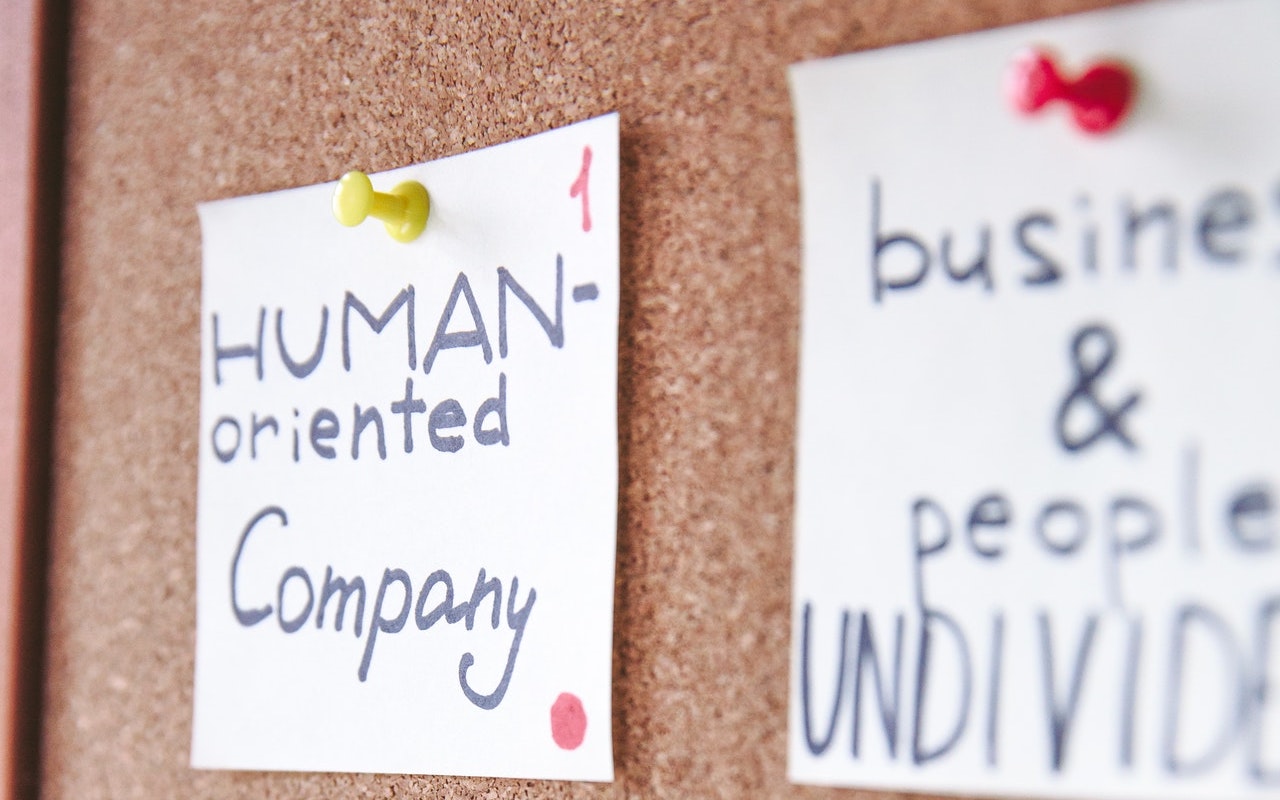 1
HUMAN-
oriented
Company
busines
&
people
UNDIVIDE